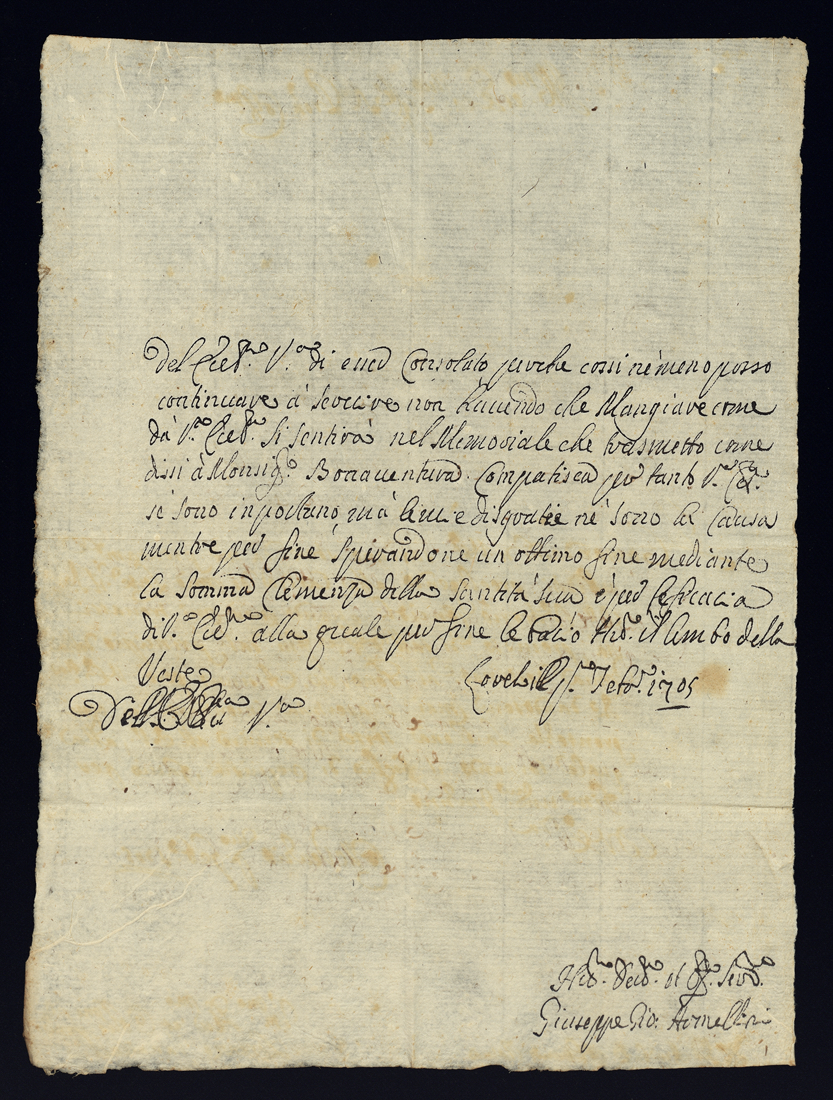 Del Cle.mo V.a di esser Consolato perche cossi ne meno posso
continuare à servire non havendo che Mangiare come
dà V.a Si sentirà nel Memoriale che trasmetto come
dissi à Monsig.r Bonaventura Compatisca per tanto V.a
sè sono inportuno, mà le mie disgratie nè sono la Causa
mentre per fine sperandone un ottimo fine mediante
la somma Clemenza della Santità sua è per l'eficacia
di V.a alla quale per fine le bacio il lembo della
Veste p.o Feb.o 1705
Dell V.a
Hu.mo Serv.e
Giuseppe Gio: Armellini